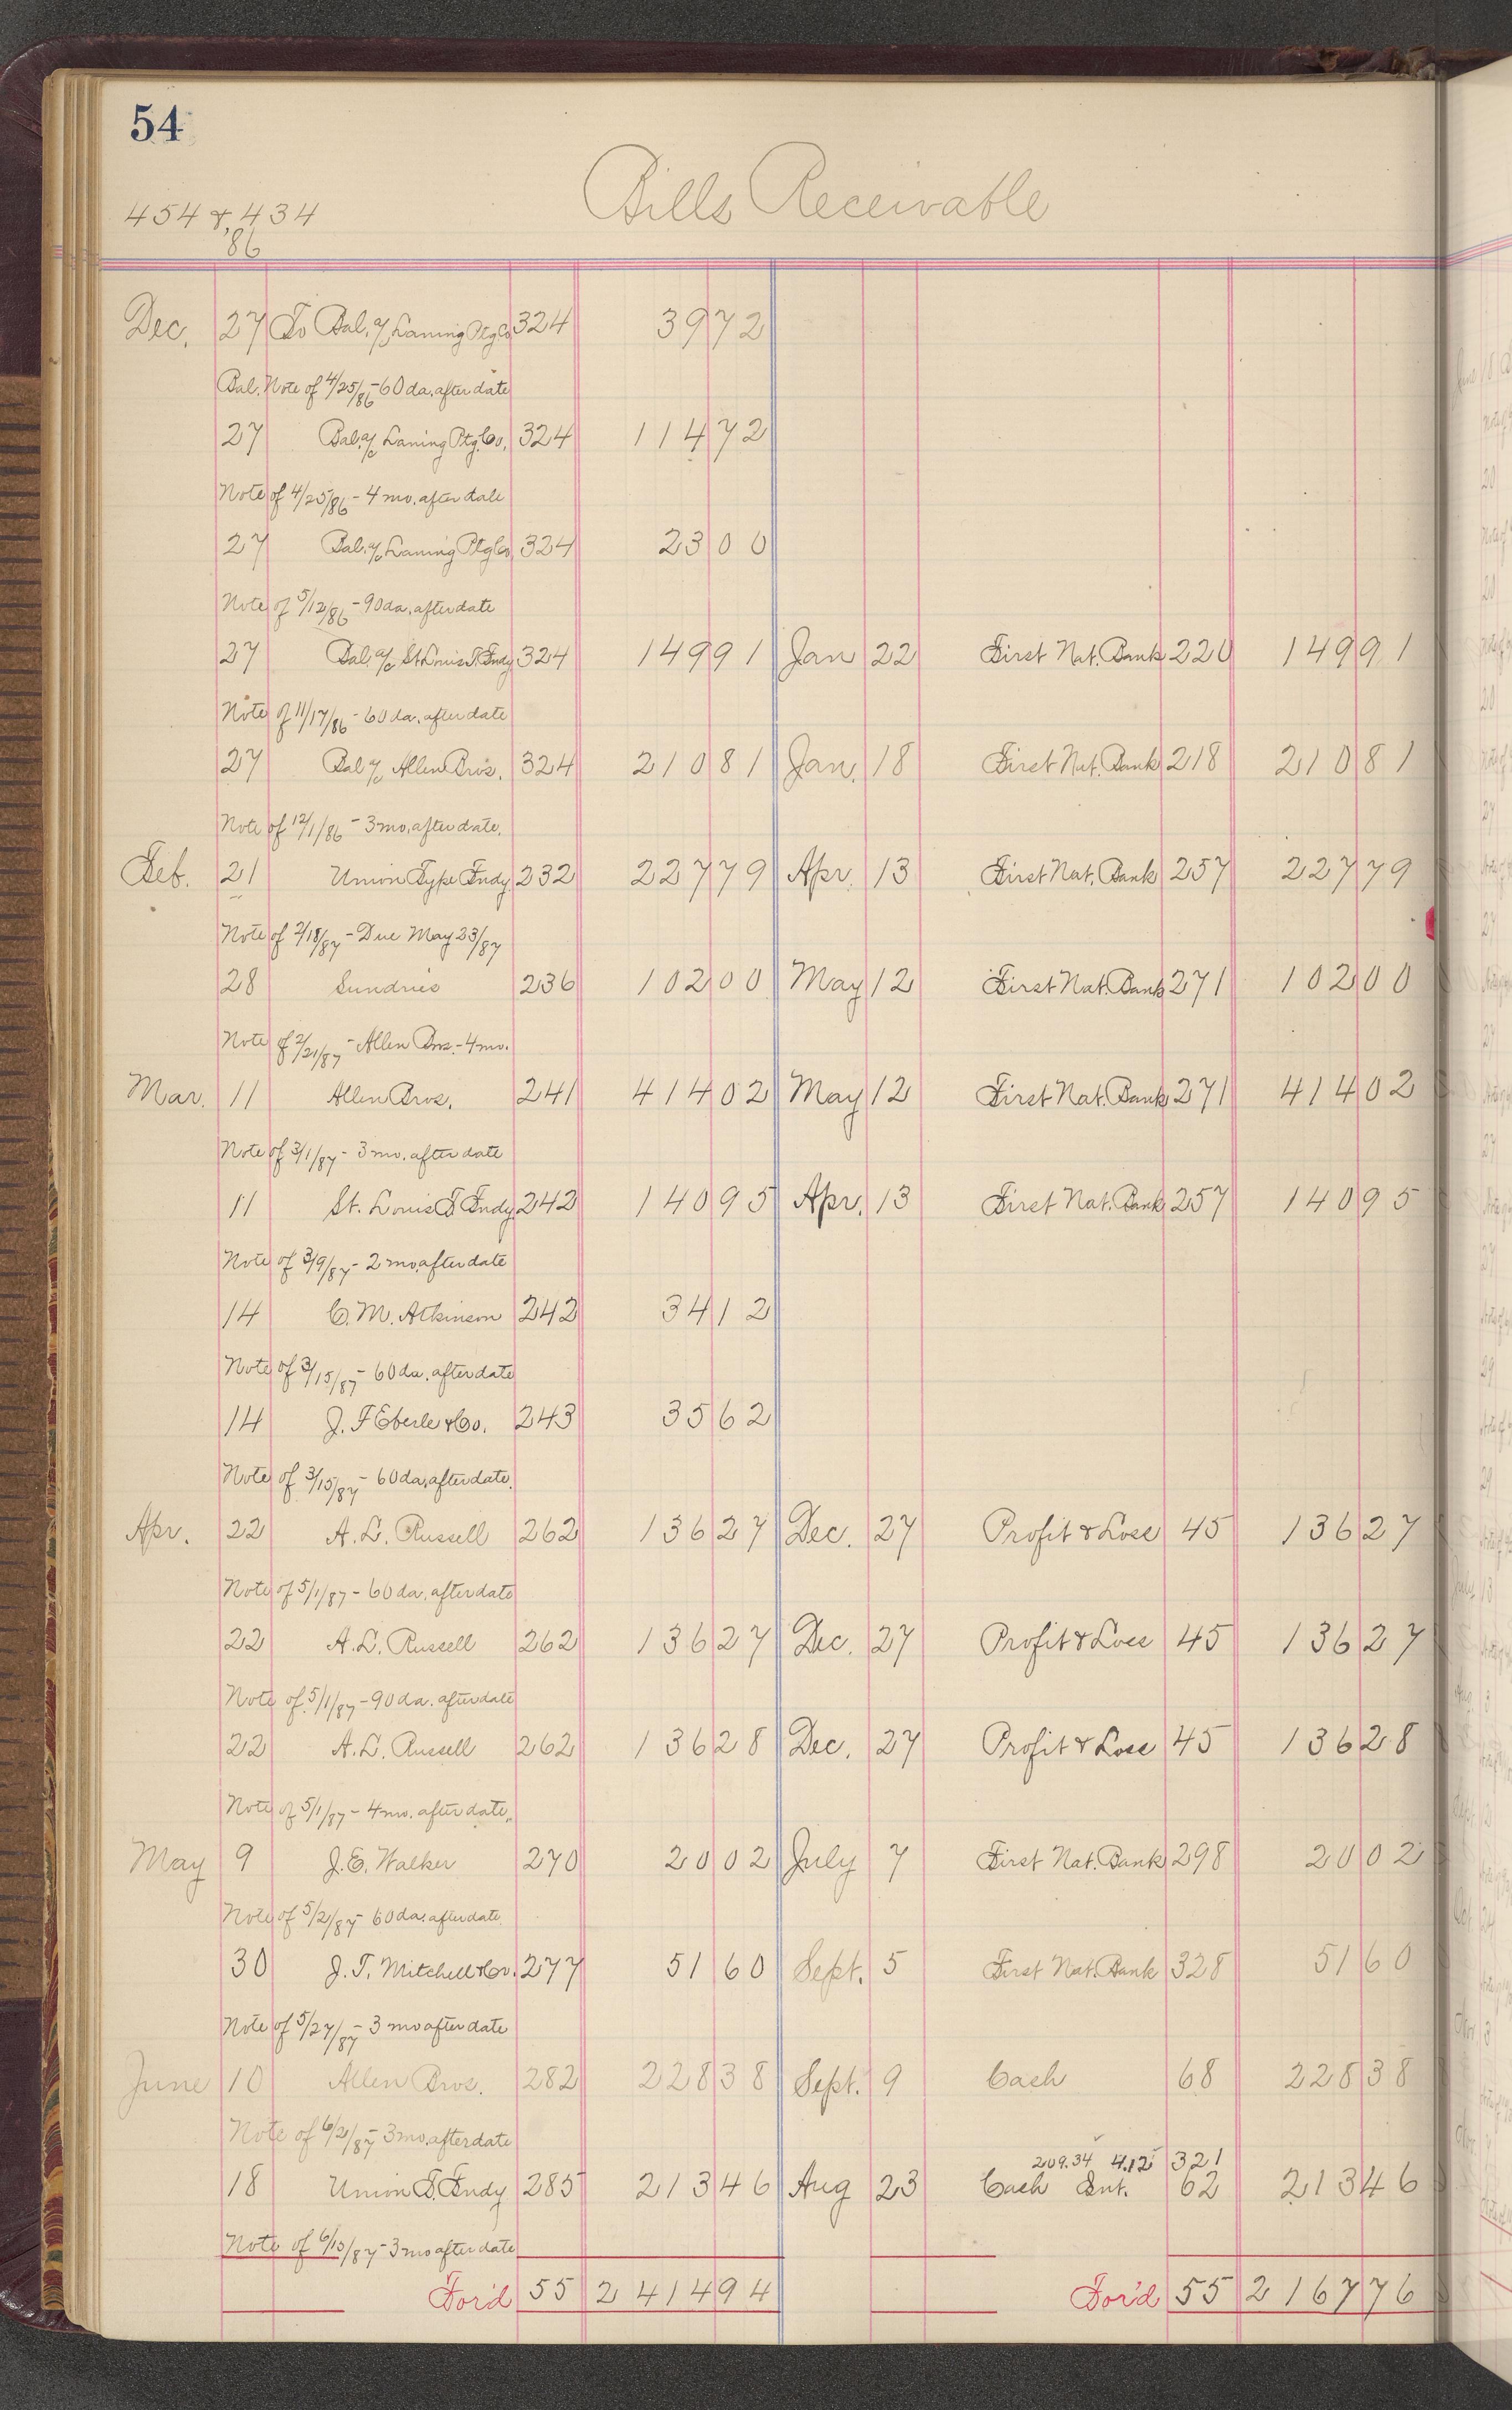 54
Bills Receivable
454 & 434
86
Dec. 27 To Bal. a/c Laning Ptg Co 324 39 72
Bal. Note of 4/25/86 - 60 da. after date
27 Bal. a/c Laning Ptg. Co. 324 114 72
Note of 4/25/86 - 4 mo. after date
27 Bal. a/c Laning Ptg Co 324 23 00
Note of 5/12/86 - 90 da. after date
27 Bal. a/c St Louis T. Fndy 324 149 91 Jan 22 First Nat. Bank 220 149 91
Note of 11/17/86 - 60 da. after date
27 Bal a/c Allen Bros. 324 210 81 Jan. 18 First Nat. Bank 218 210 81
Note of 12/1/86 - 3 mo. after date.
Feb. 21 Union Type Fndy 232 227 79 Apr. 13 First Nat. Bank 257 227 79
Note of 2/18/87 - Due May 23/87
28 Sundries 236 102 00 May 12 First Nat. Bank 271 102 00
Note of 2/21/87 - Allen Bros. - 4 mo.
Mar. 11 Allen Bros. 241 414 02 May 12 First Nat. Bank 271 414 02
Note of 3/1/87 - 3 mo. after date
11 St. Louis T Fndy 242 140 95 Apr. 13 First Nat. Bank 257 140 95
Note of 3/9/87 - 2 mo. after date
14 C. M. Atkinson 242 34 12
Note of 3/15/87 - 60 da. after date
14 J. F Eberle & Co. 243 35 62
Note of 3/15/87 - 60 da. after date.
Apr. 22 A. L. Russell 262 136 27 Dec. 27 Profit & Loss 45 136 27
Note of 5/1/87 - 60 da. after date
22 A. L. Russell 262 136 27 Dec. 27 Profit & Loss 45 136 27
Note of 5/1/87 - 90 da. after date
22 A. L. Russell 262 136 28 Dec. 27 Profit & Loss 45 136 28
Note of 5/1/87 - 4 mo. after date.
May 9 J. E. Walker 270 20 02 July 7 First Nat. Bank 298 20 02
Note of 5/2/87 - 60 da. after date
30 J. T. Mitchell & Co. 277 51 60 Sept. 5 First Nat. Bank 328 51 60
Note of 5/27/87 - 3 mo after date
June 10 Allen Bros. 282 228 38 Sept. 9 Cash 68 228 38
Note of 6/2/87 - 3 mo. after date
209.34 4.12 321
18 Union T. Fndy 285 213 46 Aug 23 Cash Int. 62 213 46
Note of 6/15/87 - 3 mo after date
For'd 55 2 414 94 For'd 55 2 167 76